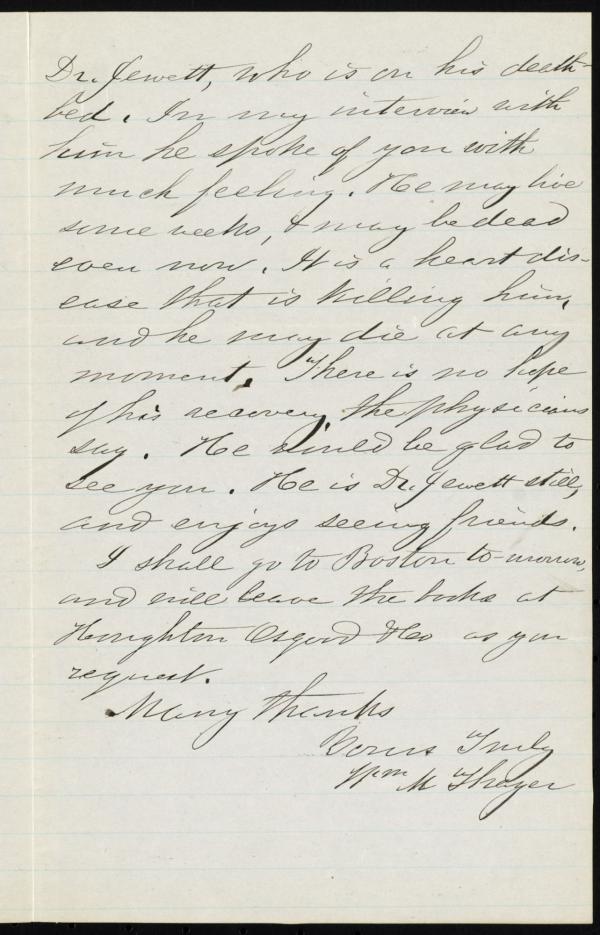 Dr. Jewett, who is on his death-
bed. In my interview with
him he spoke of you with
much feeling. He may live
some weeks, & may be dead
even now. It is a heart dis-
ease that is killing him,
and he may die at any
moment. There is no hope
of his recovery, the physicians
say. He would be glad to
see you. He is Dr. Jewett still,
and enjoys seeing friends.
I shall go to Boston to-morrow,
and will leave the books at
Houghton Osgood & Co as you
request.
Many thanks
Yours Truly
Wm M Thayer